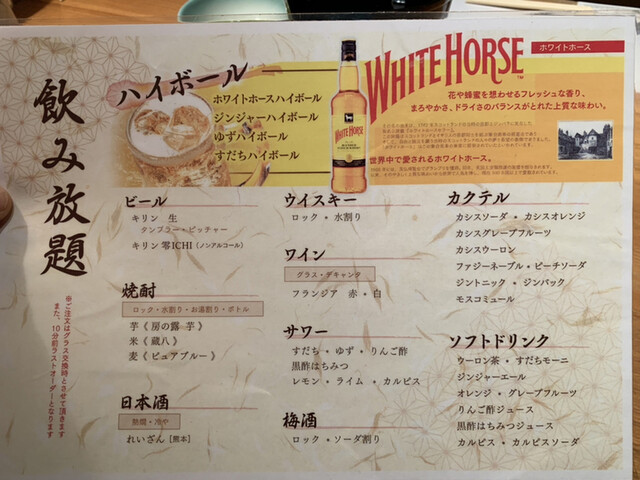 飲み放題
※ご注文はグラス交換時とさせて頂きます
また、10分前ラストオーダーとなります
ハイボール
ホワイトホースハイボール
ジンジャーハイボール
ゆずハイボール
すだちハイボール
WHITE HORSE
WHITE HORSE
ホワイトホース
花や蜂蜜を想わせるフレッシュな香り、
まろやかさ、ドライさのバランスがとれた上質な味わい。
世界中で愛されるホワイトホース。
ビール
キリン 生
タンブラー・ピッチャー
キリン 零ICHI(ノンアルコール)
焼酎
ロック・水割り・お湯割り・ボトル
芋《 房の露 芋 》
米《 蔵八 》
麦《 ピュアブルー 》
日本酒
熱燗・冷や
れいざん [熊本]
ウイスキー
ロック・水割り
ワイン
グラス・デキャンタ
フランジア 赤・白
サワー
すだち・ゆず・りんご酢
黒酢はちみつ
レモン・ライム・カルピス
梅酒
ロック・ソーダ割り
カクテル
カシスソーダ・カシスオレンジ
カシスグレープフルーツ
カシスウーロン
ファジーネーブル・ピーチソーダ
ジントニック・ジンバック
モスコミュール
ソフトドリンク
ウーロン茶・すだちモーニ
ジンジャーエール
オレンジ・グレープフルーツ
りんご酢ジュース
黒酢はちみつジュース
カルピス・カルピスソーダ